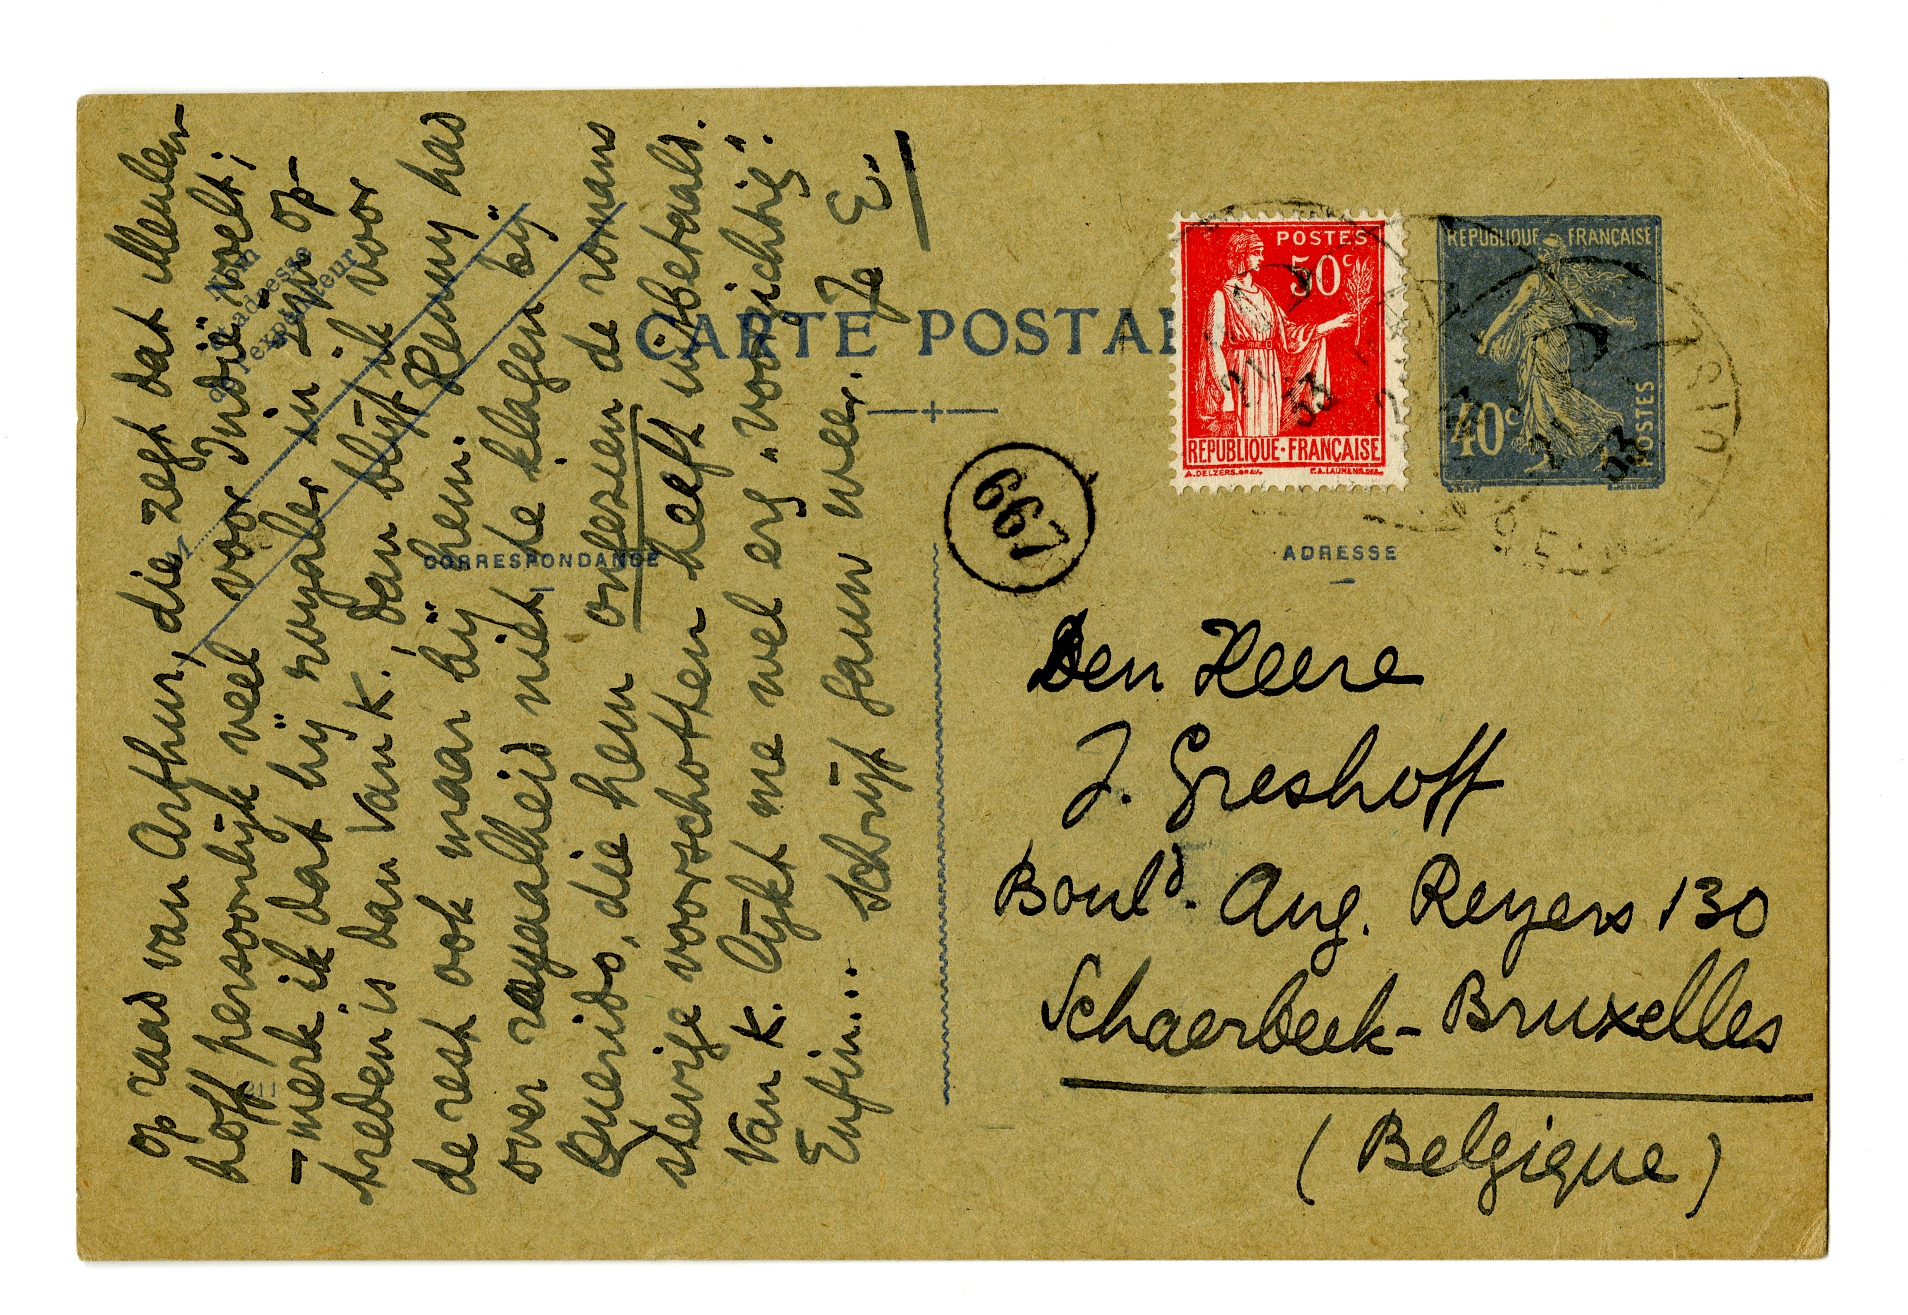 op raad van Arthur, die zegt dat Meulen-
hoff persoonlijk veel voor Indië voelt;
- merk ik dat hij royaler in zijn op-
treden is dan Van K., dan blijf ik voor
de rest ook maar bij hem. Remy had
over royaalheid niet te klagen bij
Querido, die hem onlezen de romans
stevige voorschotten heeft uitbetaald.
Van K. lijkt me wel erg „voorzichtig".
Enfin...
schrijf gauw weer. Je E.
Nom
et adresse
de l'expéditeur
M
CARTE POSTAL
CORRESPONDANCE
ADRESSE
667
POSTES
50c
REPUBLIQUE·FRANÇAISE
REPUBLIQUE FRANÇAISE
40c
POSTES
33
33
Den Heere
J. Greshoff
Bould. Aug. Reyers 130
Schaerbeek-Bruxelles
(Belgique)